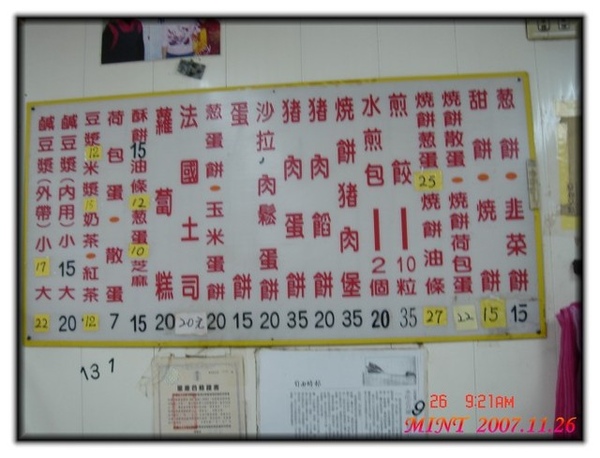 葱餅•韭菜餅 15
甜餅•燒餅 15
燒餅散蛋•燒餅荷包蛋 22
燒餅葱蛋25燒餅油條 27
煎餃10粒 35
水煎包2個 20
燒餅豬肉堡 35
豬肉餡餅 20
豬肉蛋餅 35
沙拉,肉鬆蛋餅 20
蛋餅 15
葱蛋餅•玉米蛋餅 20
法國土司 20元
蘿蔔糕 20
酥餅15油條12葱蛋10芝麻 15
荷包蛋•散蛋 7
豆漿12米漿15奶茶•紅茶 12
鹹豆漿(內用)小15大 20
鹹豆漿(外帶)小17大 22
13 1
9
26 9:21AM
MINT 2007.11.26